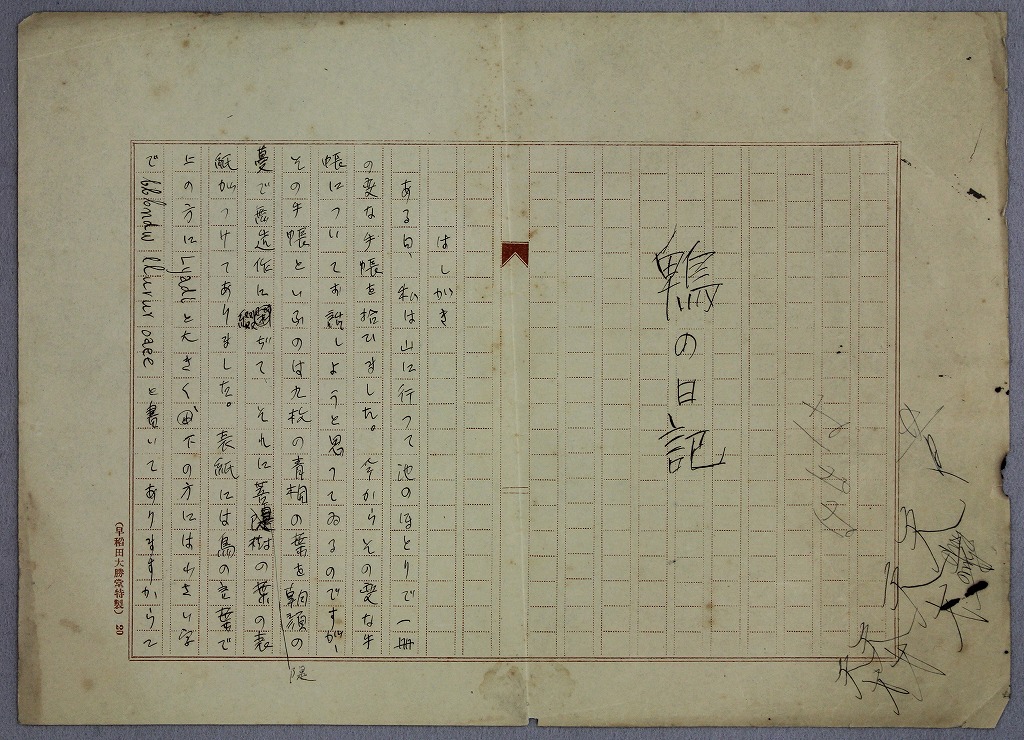 鴨の日記
はしがき
ある日、私は山に行つて池のほとりで一冊
の変な手帳を拾ひました。今からその変な手
帳についてお話しようと思つてゐるのですが、
その手帳といふのは九枚の青桐の葉を朝顔の
蔓で無造作に綴ぢて それに菩提樹の葉の表
紙がつけてありました。表紙には鳥の言葉で
上の方に Lyadl と大きく 下の方には小さい字
で bblondw llurur oaee と書いてありますからこ
(早稲田大勝堂特製) 20